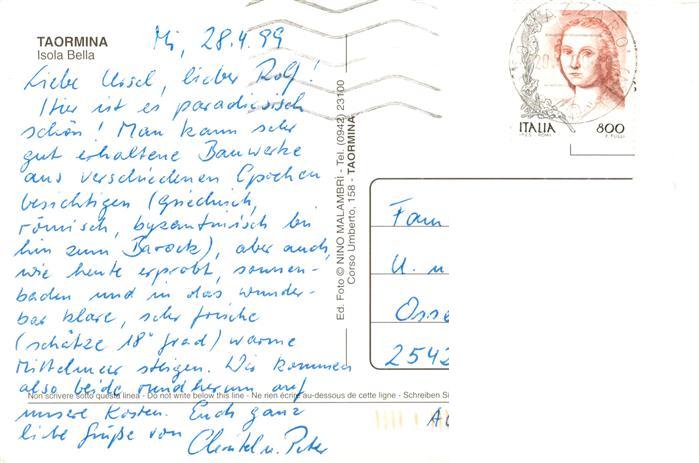 TAORMINA
Isola Bella
Mi, 28.4.99
Liebe Ursel, lieber Rolf!
Hier ist es paradiesisch
schön! Man kann sehr
gut erhaltene Bauwerke
aus verschiedenen Epochen
besichtigen (griechisch,
römisch, byzantinisch bis
hin zum Barock), aber auch,
wie heute erprobt, sonnen-
baden und in das wunder-
bar klare, sehr frische
(schätze 18° grad) warme
Mittelmeer steigen. Wir kommen
also beide rundherum auf
unsere Kosten. Euch ganz
liebe Grüße von
Christel u. Peter
Non scrivere sotto questa linea - Do not write below this line - Ne rien écrire au-dessous de cette ligne - Schreiben Si
Ed. Foto © NINO MALAMBRI - Tel. (0942) 23100
Corso Umberto, 158 - TAORMINA
ITALIA 800
Fam
U. u
Osse
2542